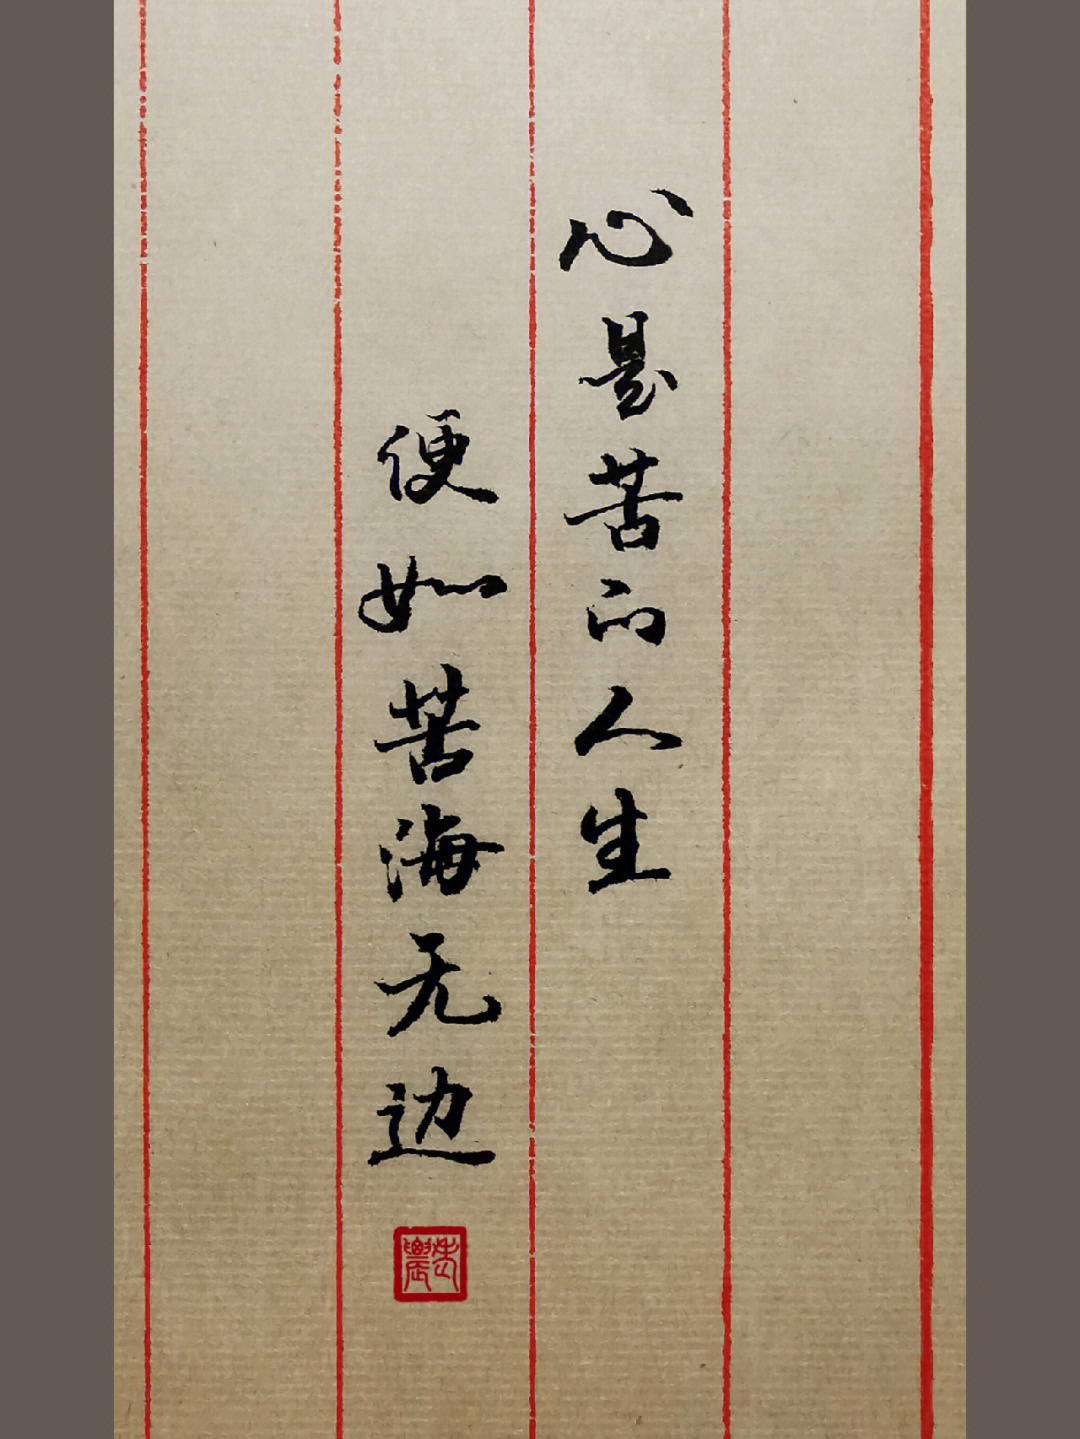 心是苦的人生
便如苦海无边